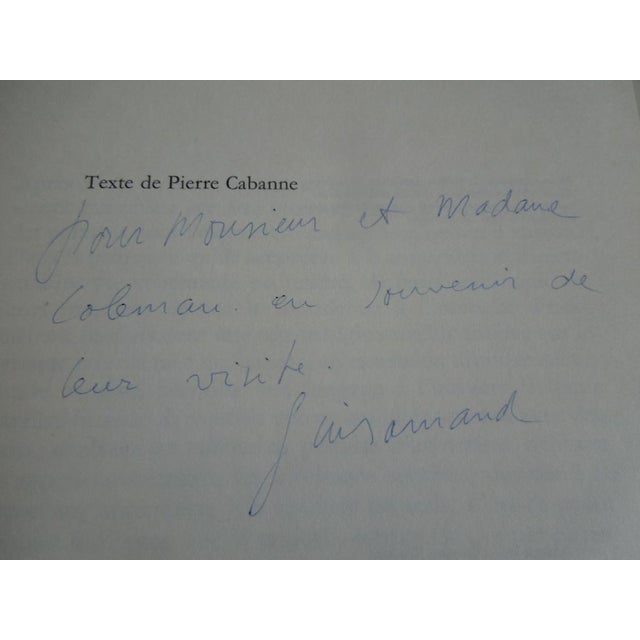 Texte de Pierre Cabanne
pour Monsieur et Madame
Coleman. en souvenir de
leur visite.
Guiramand